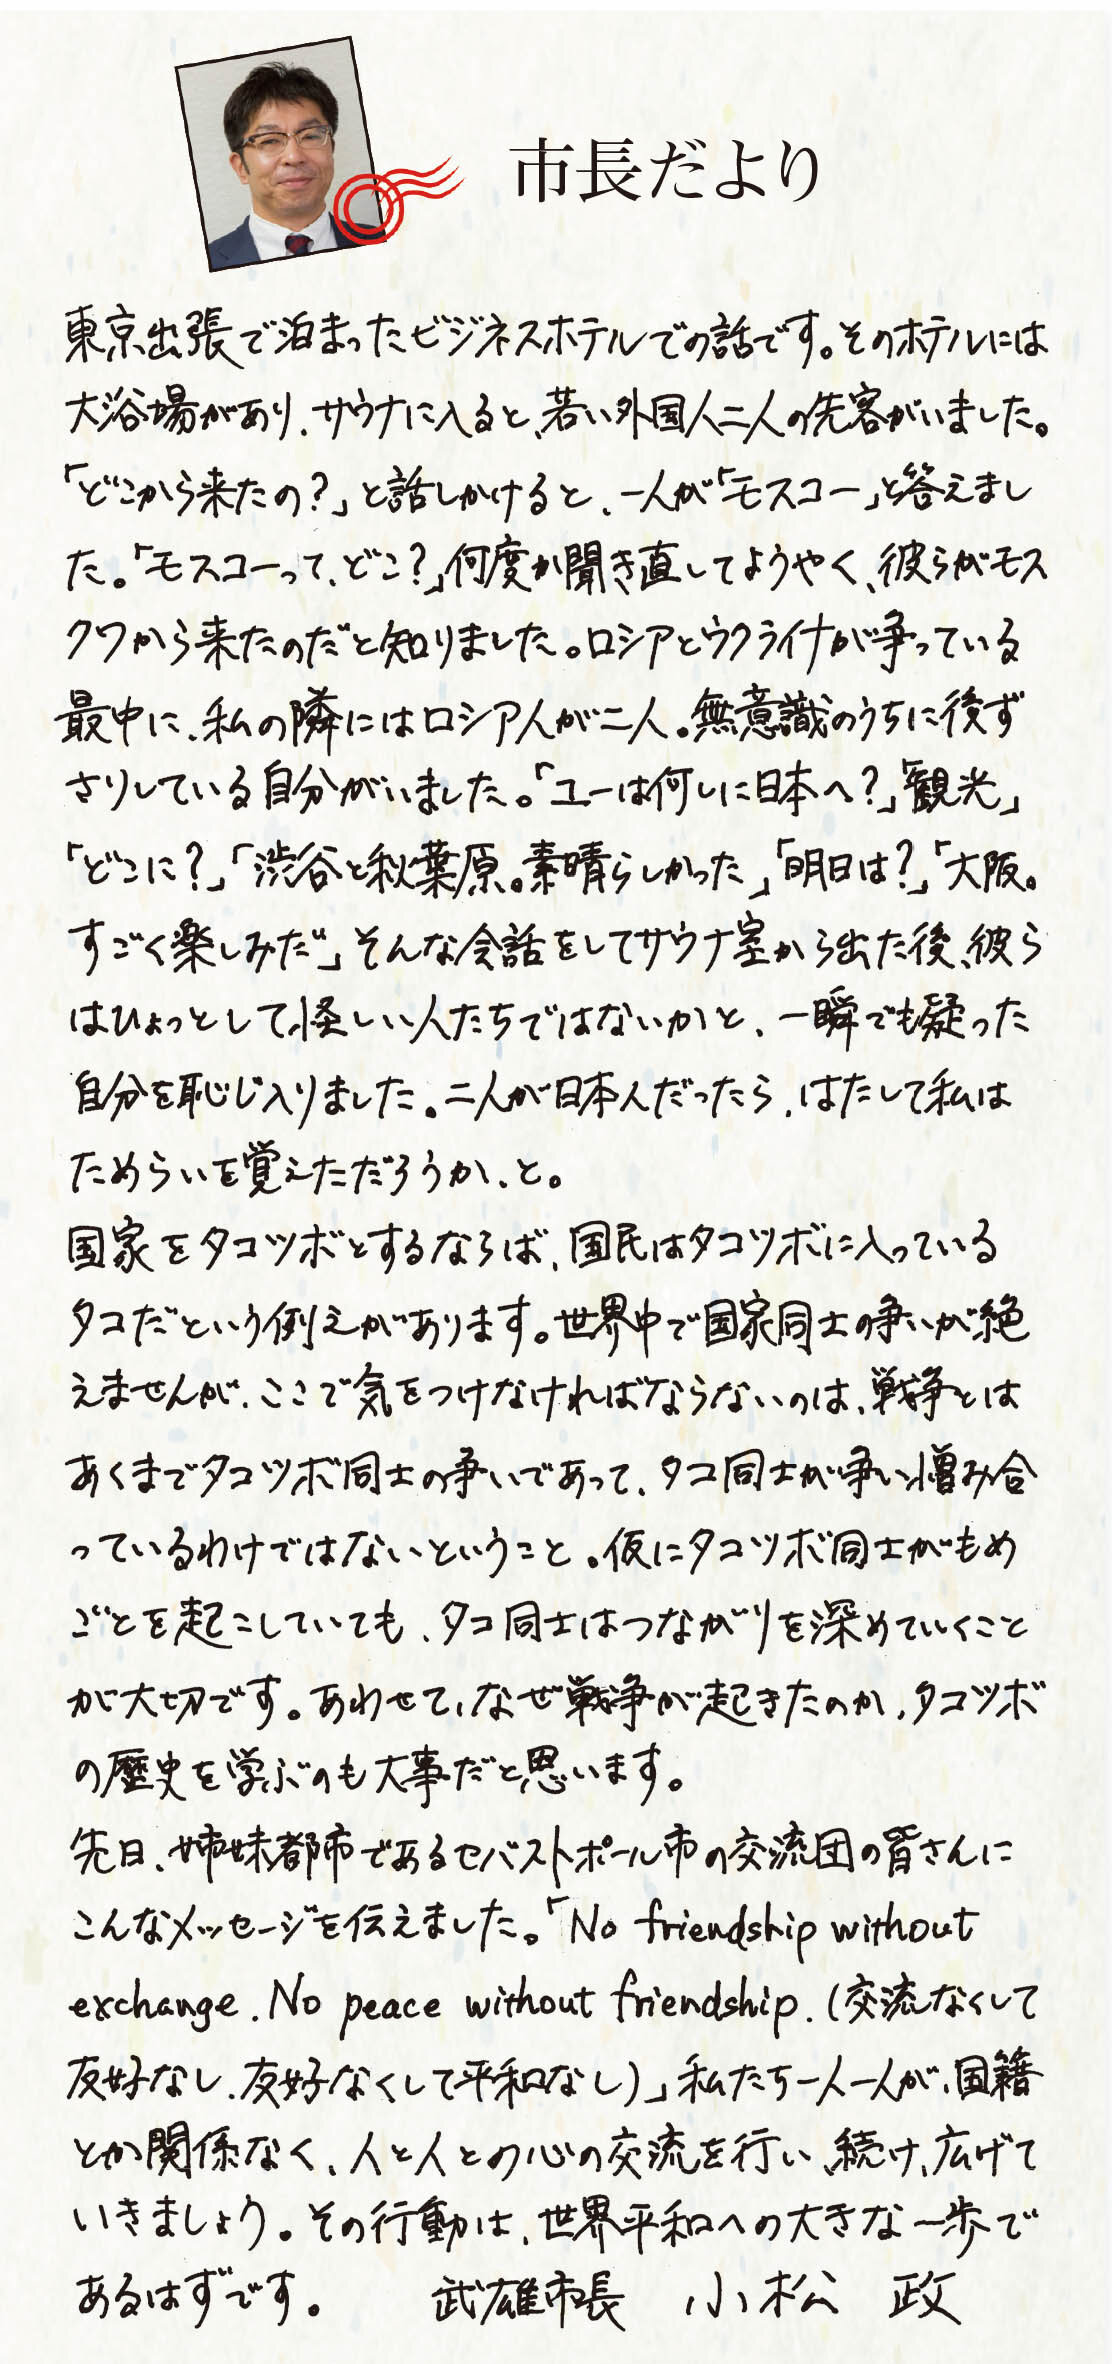 市長だより
東京出張で泊まったビジネスホテルでの話です。そのホテルには
大浴場があり、サウナに入ると、若い外国人二人の先客がいました。
「どこから来たの?」と話しかけると、一人が「モスコー」と答えまし
た。「モスコーって、どこ?」何度か聞き直してようやく、彼らがモス
クワから来たのだと知りました。ロシアとウクライナが争っている
最中に、私の隣にはロシア人が二人。無意識のうちに後ず
さりしている自分がいました。「ユーは何しに日本へ?」「観光」
「どこに?」「渋谷と秋葉原。素晴らしかった」「明日は?」「大阪。
すごく楽しみだ」そんな会話をしてサウナ室から出た後、彼ら
はひょっとして、怪しい人たちではないかと、一瞬でも疑った
自分を恥じ入りました。二人が日本人だったら、はたして私は
ためらいを覚えただろうか、と。
国家をタコツボとするならば、国民はタコツボに入っている
タコだという例えがあります。世界中で国家同士の争いが絶
えませんが、ここで気をつけなければならないのは、戦争とは
あくまでタコツボ同士の争いであって、タコ同士が争い憎み合
っているわけではないということ。仮にタコツボ同士がもめ
ごとを起こしていても、タコ同士はつながりを深めていくこと
が大切です。あわせて、なぜ戦争が起きたのか、タコツボ
の歴史を学ぶのも大事だと思います。
先日、姉妹都市であるセバストポール市の交流団の皆さんに
こんなメッセージを伝えました。「No friendship without
exchange. No peace without friendship. (交流なくして
友好なし、友好なくして平和なし)」私たち一人一人が、国籍
とか関係なく、人と人との心の交流を行い、続け、広げて
いきましょう。その行動は、世界平和への大きな一歩で
あるはずです。 武雄市長 小松 政